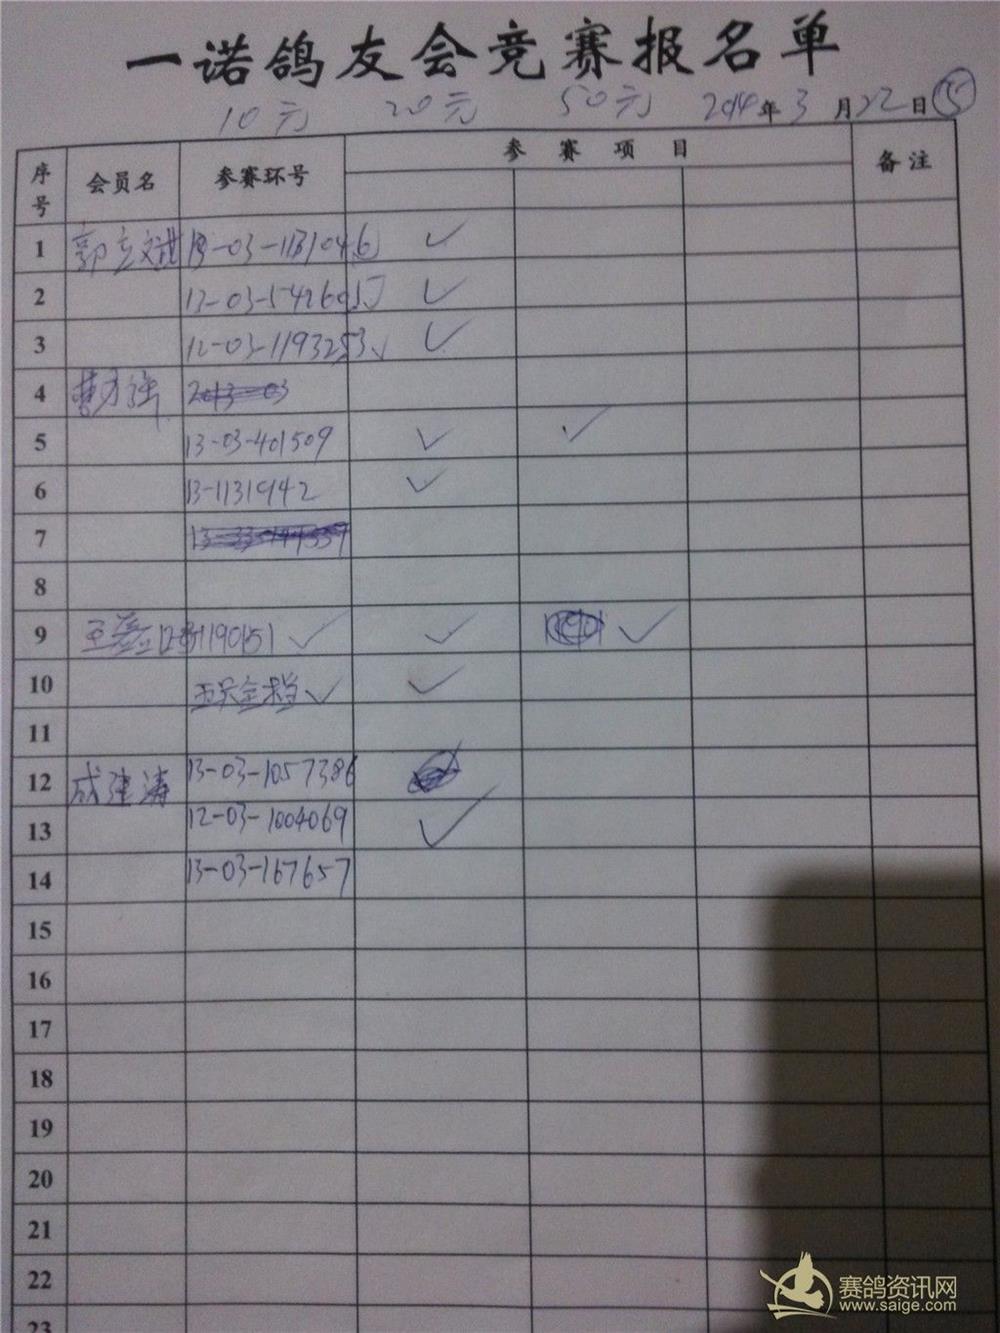 一诺鸽友会竞赛报名单
10元 20元 50元 2014年3月22日 ⑤
序号 会员名 参赛环号 参赛项目 备注
1 郭立斌 13-03-1131046 ✓
2 13-03-542605 ✓
3 12-03-1193253 ✓
4
5 13-03-401509 ✓ ✓
6 13-1131942 ✓
7
8
9 1190151 ✓ ✓ ✓
10 ✓ ✓
11
12 成建涛 13-03-1057386
13 12-03-1004069 ✓
14 13-03-167657
15
16
17
18
19
20
21
22
23
赛鸽资讯网
www.saige.com